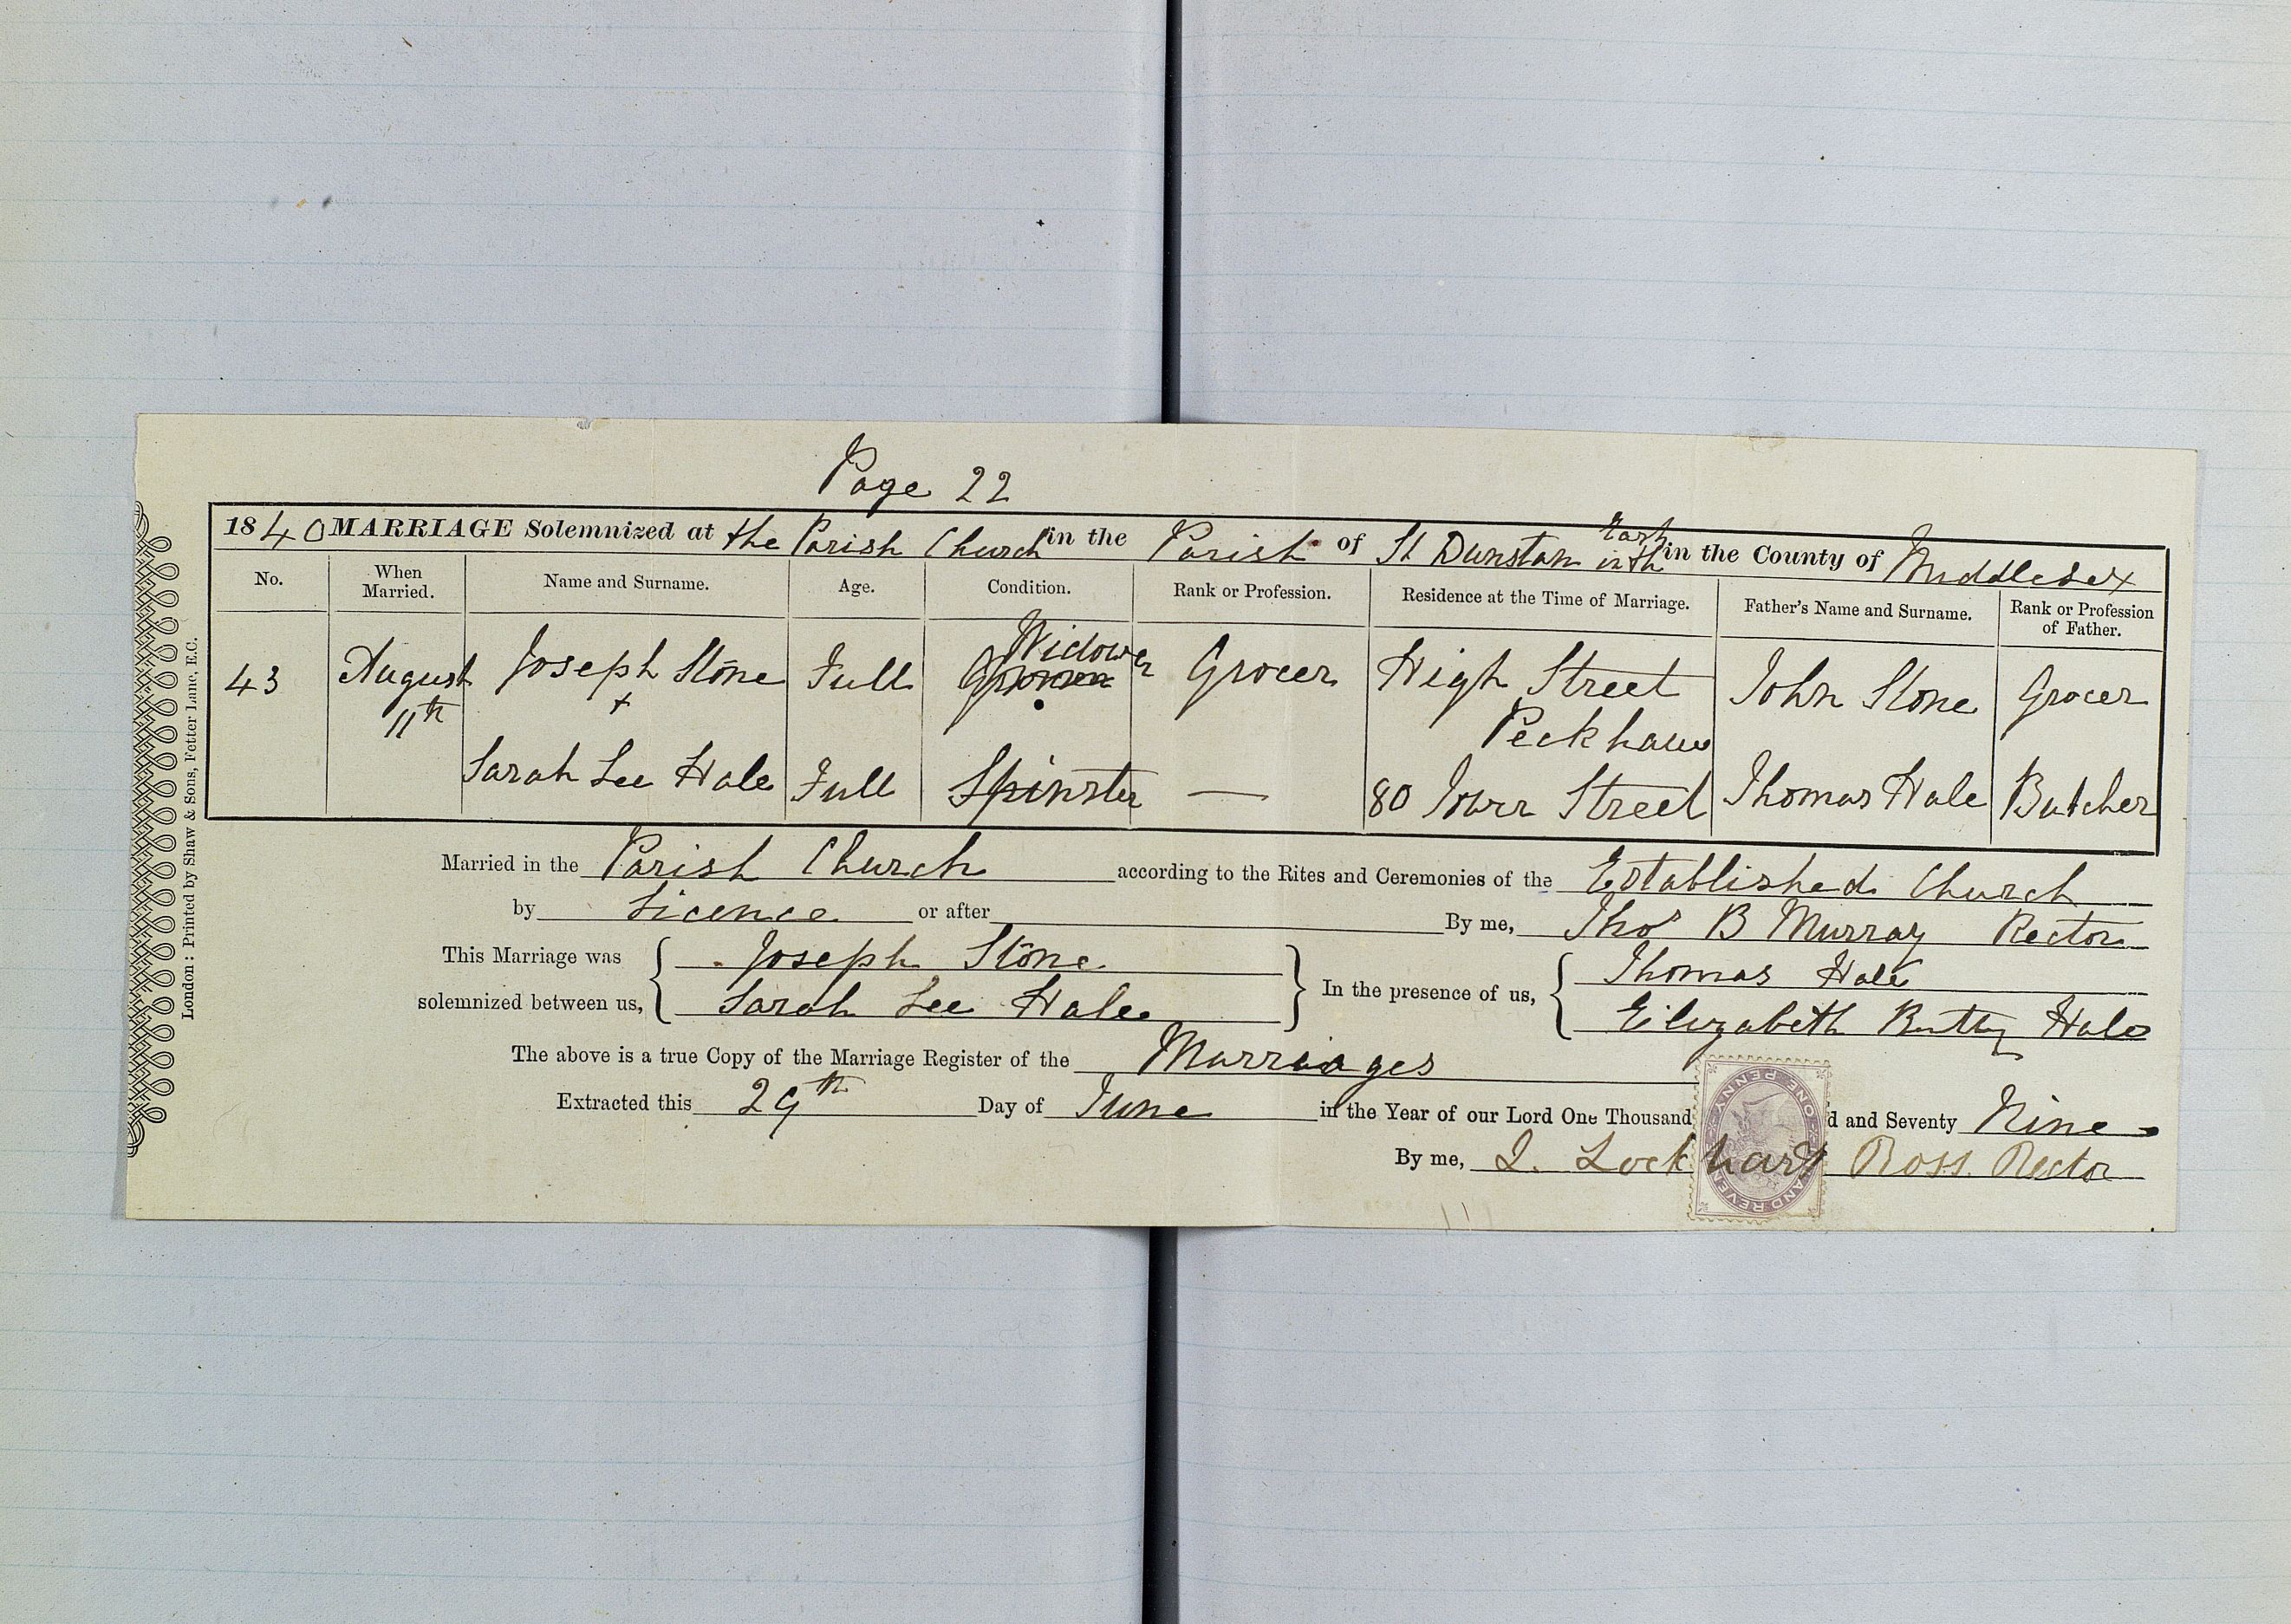 Page 22
1840 MARRIAGE Solemnized at the Parish Church in the Parish of St Dunstan in the East in the County of Middlesex
No. When Married. Name and Surname. Age. Condition. Rank or Profession. Residence at the Time of Marriage. Father's Name and Surname. Rank or Profession of Father.
Widower
43 August 11th Joseph Stone Full Grocer High Street Peckham John Stone Grocer
+
Sarah Lee Hale Full Spinster — 80 Tower Street Thomas Hale Butcher
Married in the Parish Church according to the Rites and Ceremonies of the Established Church
by Licence or after By me, Thos B Murray Rector
This Marriage was solemnized between us, { Joseph Stone } In the presence of us, { Thomas Hale
Sarah Lee Hale Elizabeth Hale
The above is a true Copy of the Marriage Register of the Marriages
Extracted this 29th Day of June in the Year of our Lord One Thousand d and Seventy Nine
By me, J. Lockhart Ross Rector
London: Printed by Shaw & Sons, Fetter Lane, E.C.
ONE PENNY
LAND REVEN